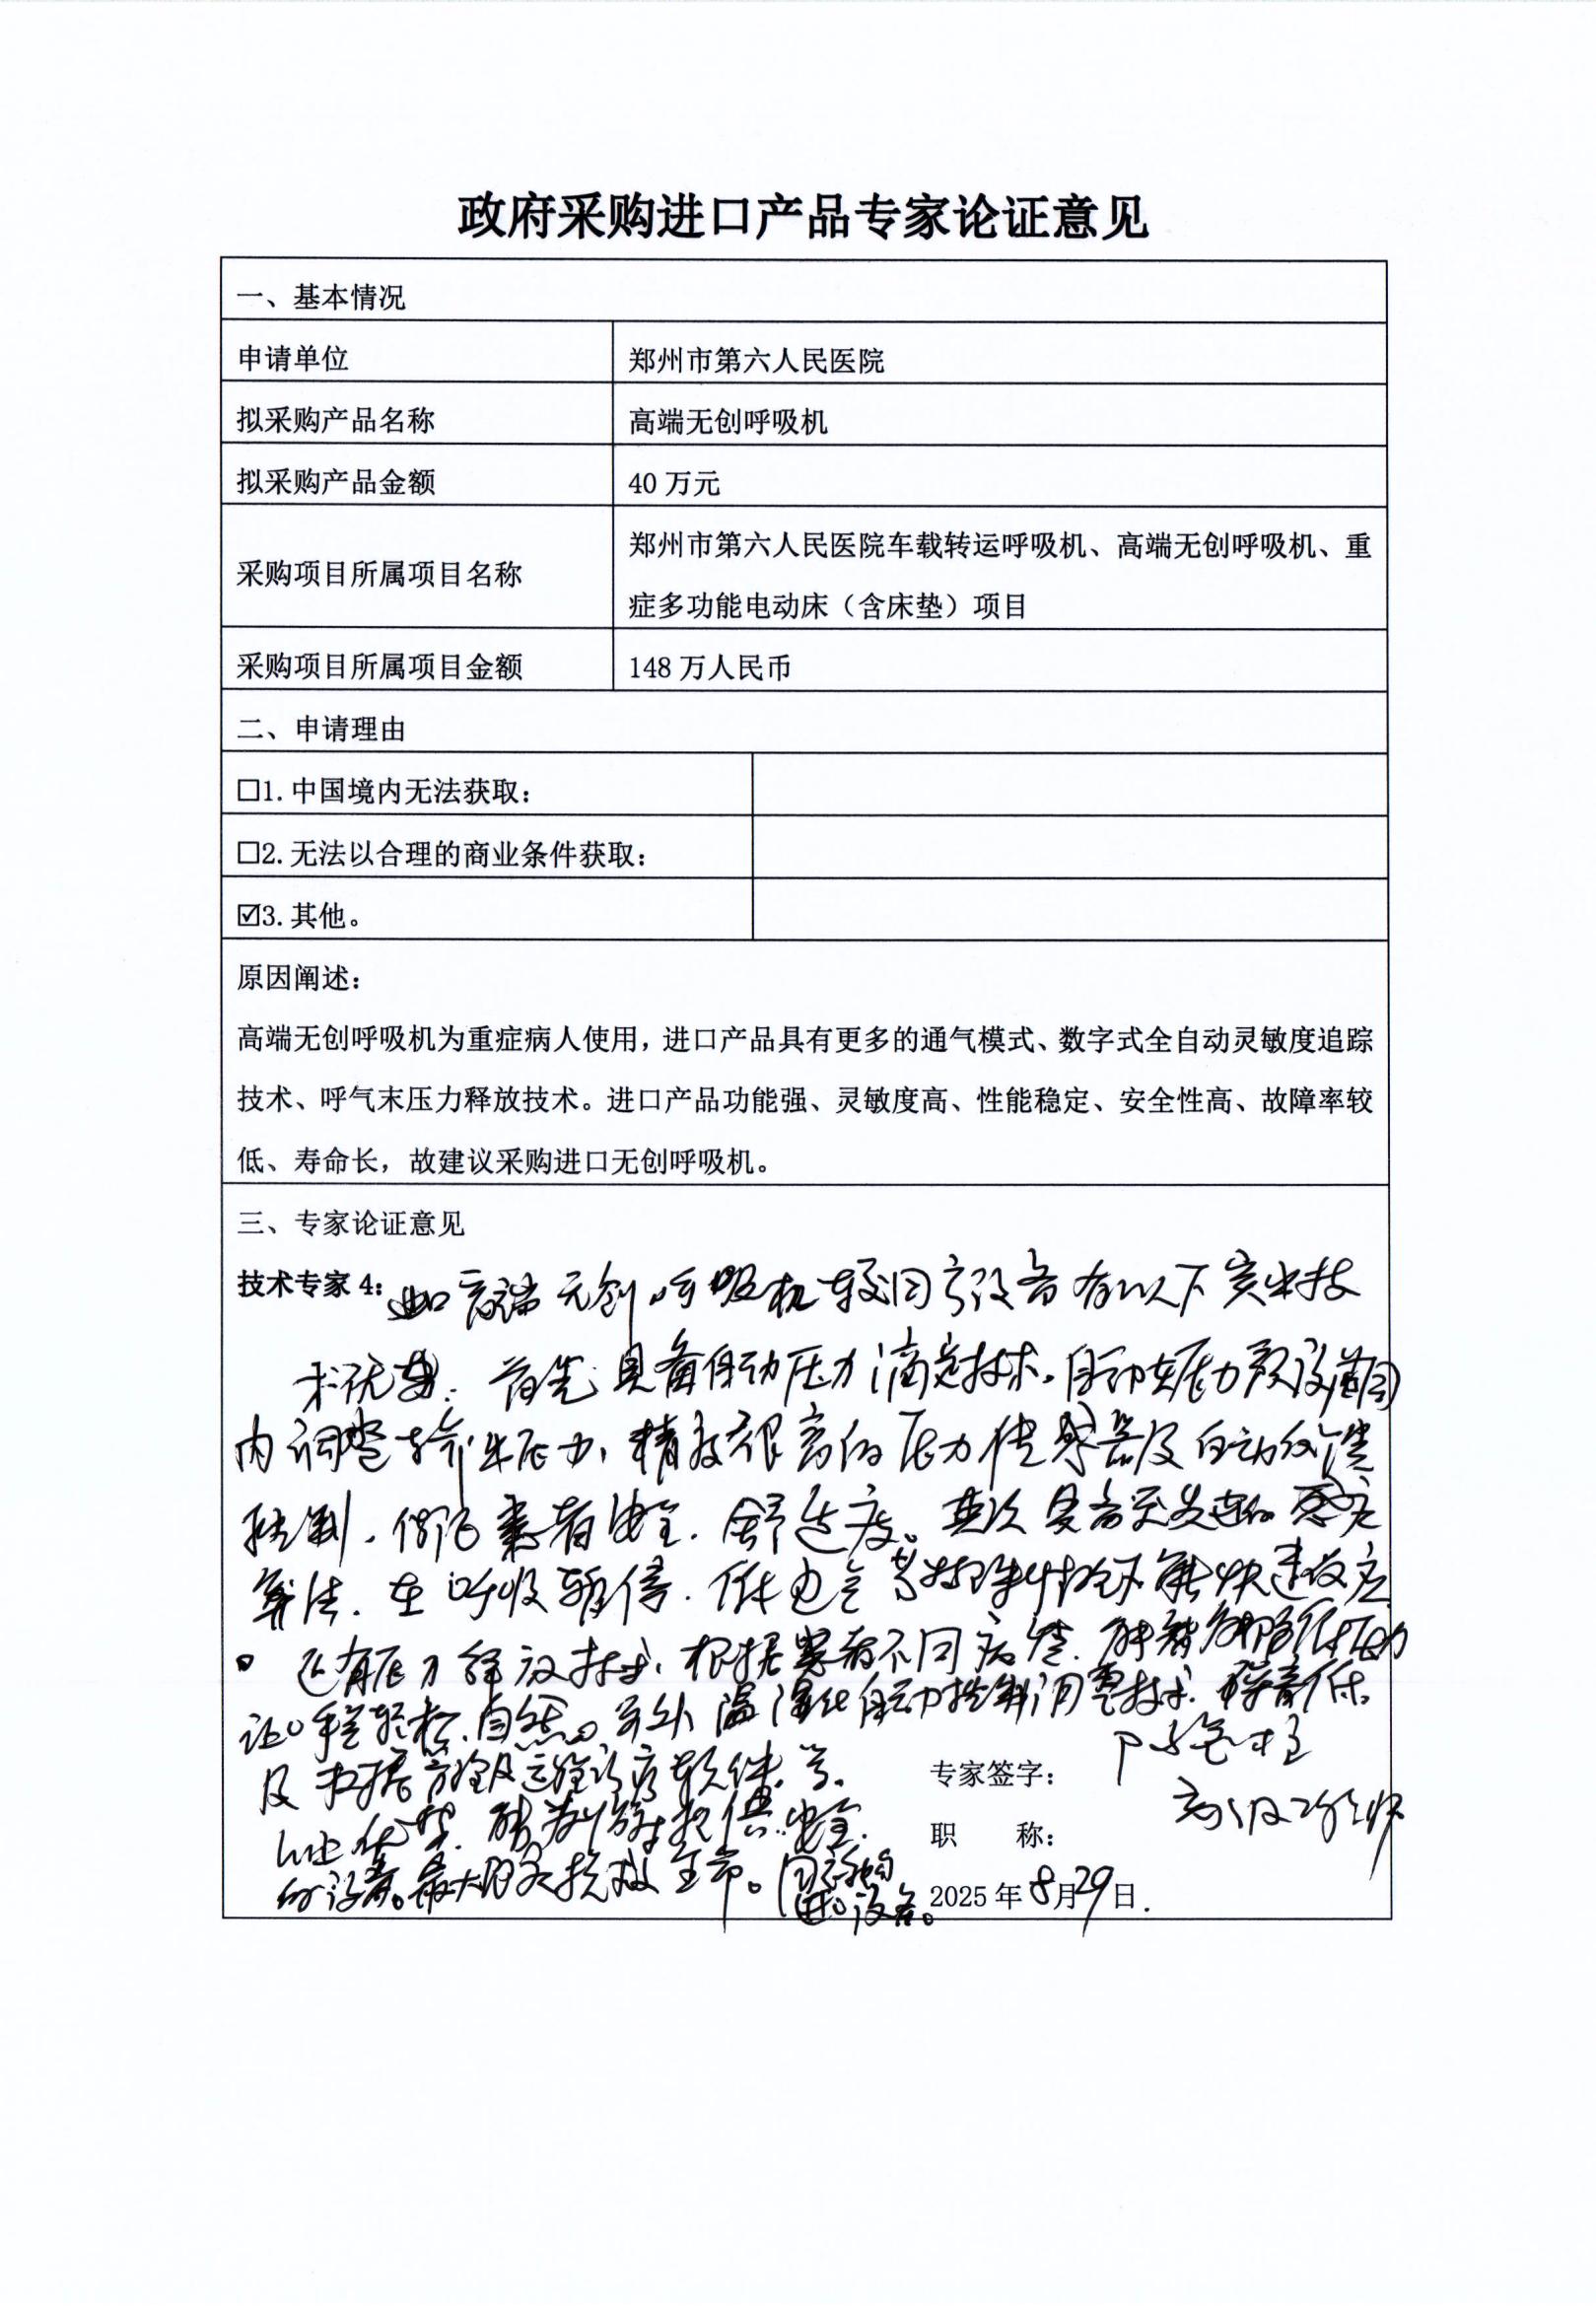 政府采购进口产品专家论证意见
一、基本情况
申请单位 郑州市第六人民医院
拟采购产品名称 高端无创呼吸机
拟采购产品金额 40 万元
采购项目所属项目名称 郑州市第六人民医院车载转运呼吸机、高端无创呼吸机、重
症多功能电动床（含床垫）项目
采购项目所属项目金额 148 万人民币
二、申请理由
☐1. 中国境内无法获取：
☐2. 无法以合理的商业条件获取：
☑3. 其他。
原因阐述：
高端无创呼吸机为重症病人使用，进口产品具有更多的通气模式、数字式全自动灵敏度追踪
技术、呼气末压力释放技术。进口产品功能强、灵敏度高、性能稳定、安全性高、故障率较
低、寿命长，故建议采购进口无创呼吸机。
三、专家论证意见
技术专家 4： 高端无创呼吸机较国产设备有以下突出技
术优势：首先具备自动压力滴定技术。自动在压力预设范围
内调整输出压力，精度很高的压力传感器及自动
控制，患者安全．舒适度。其次具备更先进的感应
算法．在呼吸暂停．低通气等特殊情况下能快速反应
还有压力释放技术，根据患者不同病情．压力
自然。另外温湿化自动控制调整技术．噪音低．
及数据管理及远程诊疗软件等．
优势．提供安全
的设备。最大限度挽救生命。同意购
进口设备。
专家签字：
职 称： 高级工程师
2025 年 8 月 29 日．